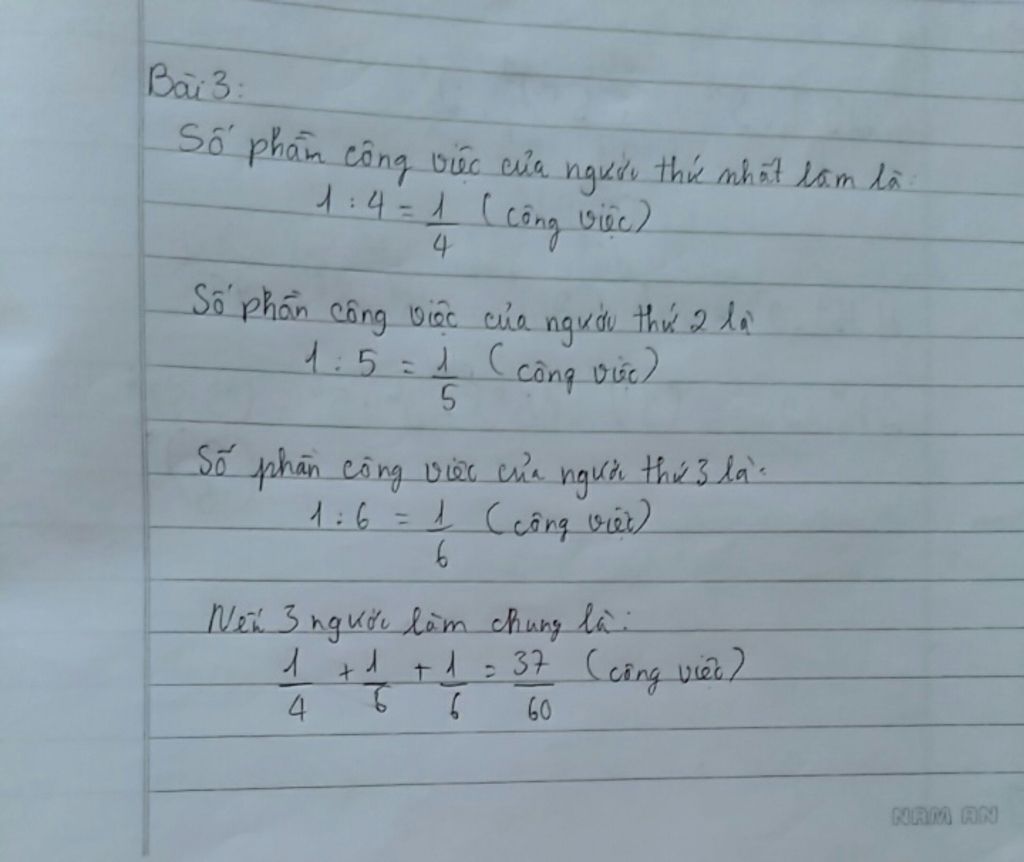 Bài 3:
Số phần công việc của người thứ nhất làm là:
1 : 4 = 1/4 (công việc)
Số phần công việc của người thứ 2 là
1 : 5 = 1/5 (công việc)
Số phần công việc của người thứ 3 là:
1 : 6 = 1/6 (công việc)
Nếu 3 người làm chung là:
1/4 + 1/6 + 1/6 = 37/60 (công việc)
NAM AN